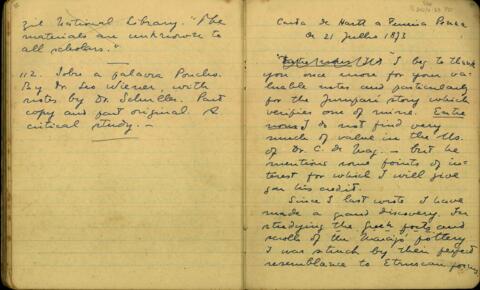 zil National Library. "The
materials are unknown to
all scholars."
112. Sobre a palavra Poncho.
By Dr. Leo Wiener, with
notes by Dr. Schuller. Part
copy and part original. A
critical study. —
Carta de Hartt a Pereira Penna
21 Julho 1873
I beg to thank
you once more for your va-
luable notes and particularly
for the Jurupari story which
verifies one of mine. Entre
nous I do not find very
much of value in the Ms.
of Dr. C. de Mag. — but he
mentions some points of in-
terest for which I will give
him his credit.
Since I last wrote I have
made a grand discovery. In
studying the Greek frets and
scrolls of the Marajó pottery
I was struck by their perfect
resemblance to Etruscan forms